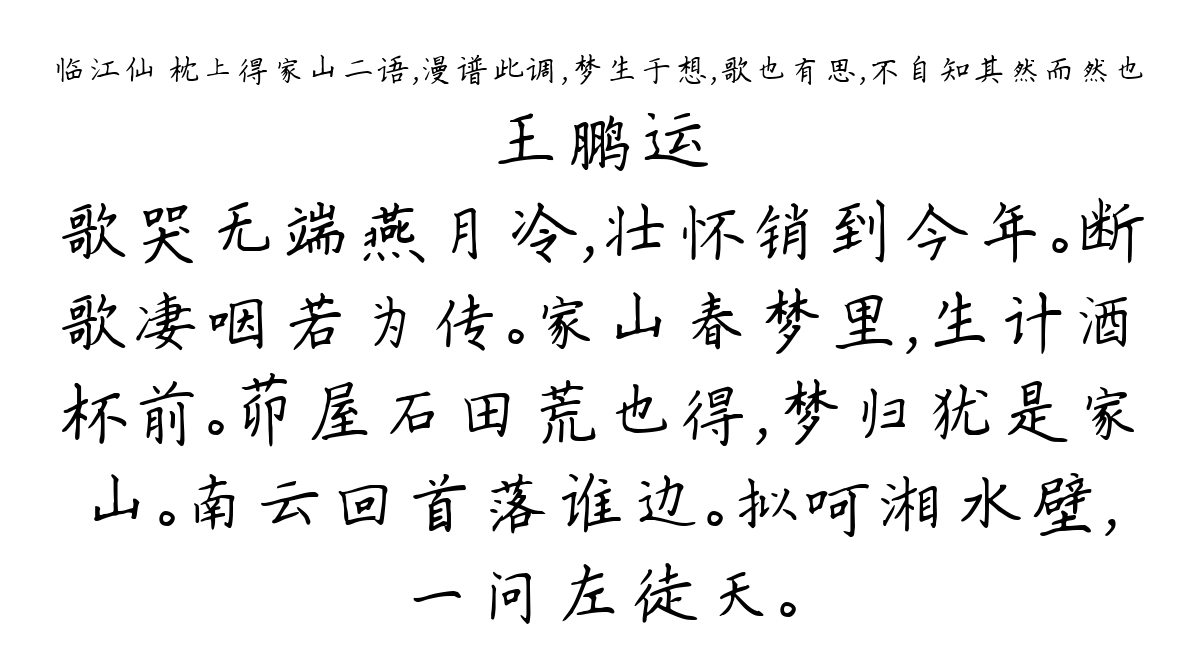 临江仙 枕上得家山二语,漫谱此调,梦生于想,歌也有思,不自知其然而然也
王鹏运
歌哭无端燕月冷,壮怀销到今年。断
歌凄咽若为传。家山春梦里,生计酒
杯前。茆屋石田荒也得,梦归犹是家
山。南云回首落谁边。拟呵湘水壁,
一问左徒天。